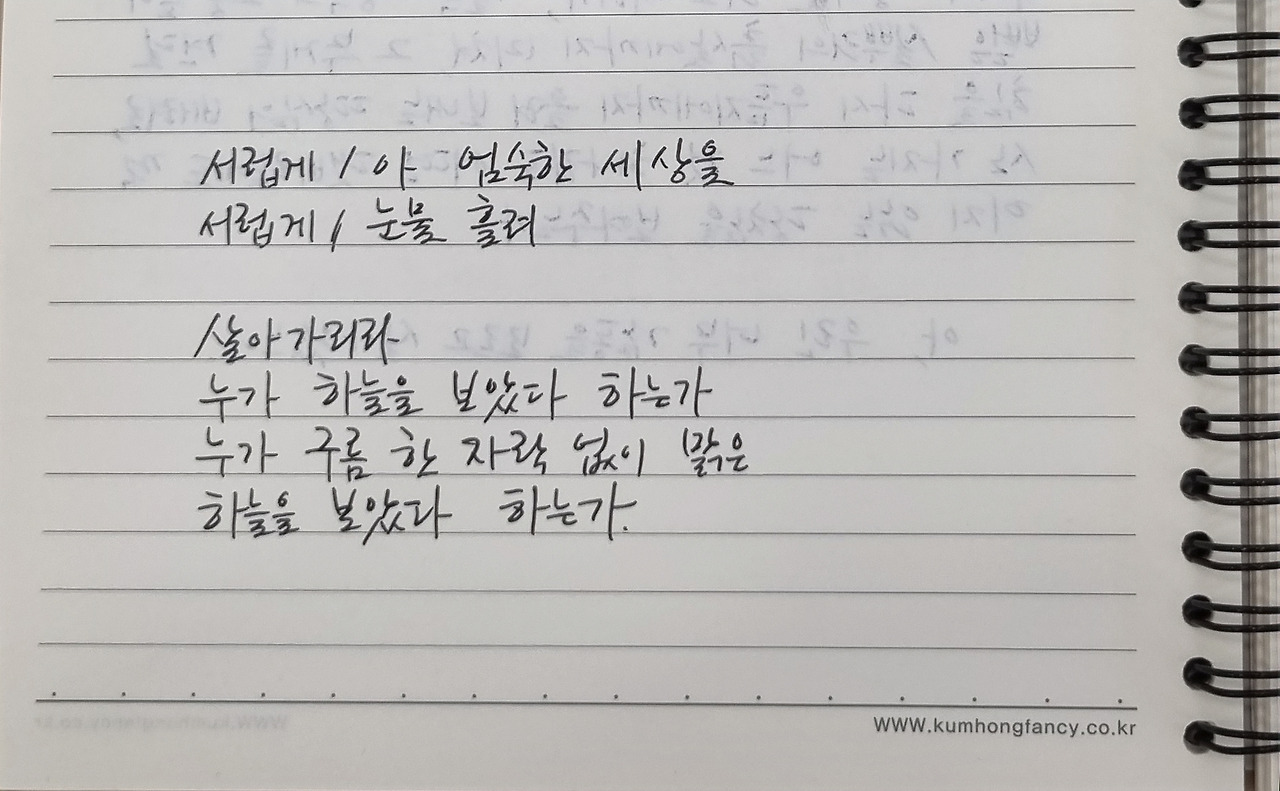 서럽게 / 아 엄숙한 세상을
서럽게 / 눈물 흘려
살아가리라
누가 하늘을 보았다 하는가
누가 구름 한 자락 없이 맑은
하늘을 보았다 하는가.
WWW.kumhongfancy.co.kr